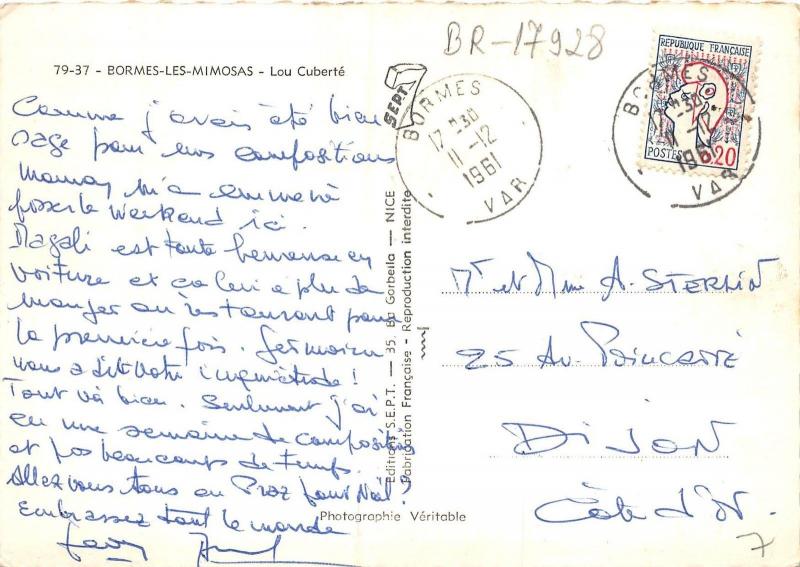 BR-17928
79-37 - BORMES-LES-MIMOSAS - Lou Cuberté
Comme j'avais été bien
sage pour mes compositions
Maman m'a emmené
passer le Weekend ici.
Magali est toute heureuse en
voiture et ça lui a plu de
manger au restaurant pour
la première fois. Germain
nous a dit votre inquiétude!
Tout va bien. Seulement j'ai
eu une semaine de compositions
et pas beaucoup de temps.
Allez vous tous au Praz pour Noël?
Embrassez tout le monde
SEPT
Editions S.E.P.T. — 35, Bd Gorbella — NICE
Fabrication Française - Reproduction interdite
Photographie Véritable
BORMES
17 H30
11-12
1961
VAR
REPUBLIQUE FRANÇAISE
POSTES 0,20
BORMES
11-12
1961
VAR
Mr et Mme A. STERLIN
25 Av. Poincarré
DIJON
Côte d'Or.
7